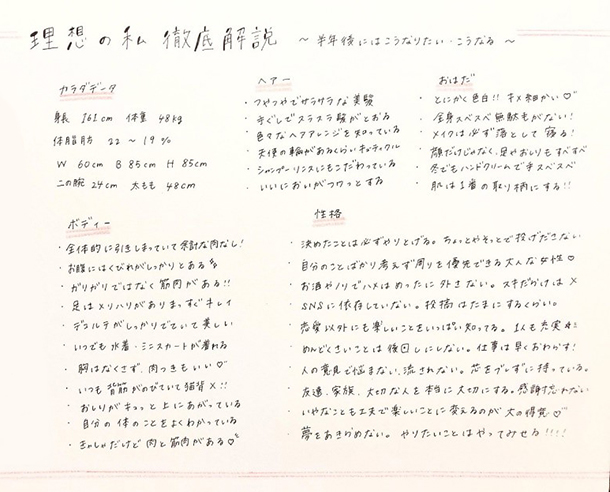 理想の私 徹底解説 〜半年後にはこうなりたい・こうなる〜
カラダデータ
身長 161cm 体重 48kg
体脂肪 22〜19%
W 60cm B 85cm H 85cm
二の腕 24cm 太もも 48cm
ヘアー
・つやつやでサラサラな美髪
・手ぐしでスラスラ髪がとおる
・色々なヘアアレンジを知っている
・天使の輪があるくらいキューティクル
・シャンプーリンスにもこだわっている
・いいにおいがフワっとする
おはだ
・とにかく色白!! キメ細かい♡
・全身スベスベ 無駄毛がない!
・メイクは必ず落として寝る!
・顔だけじゃなく、足やおしりもすべすべ
・冬でもハンドクリームで手スベスベ
・肌は1番の取り柄にする!!
ボディー
・全体的に引きしまっていて余計な肉なし!
・お腹にはくびれがしっかりとある
・ガリガリではなく筋肉がある!!
・足はメリハリがありまっすぐキレイ
・デコルテがしっかりでていて美しい
・いつでも水着・ミニスカートが着れる
・胸はなくさず、肉つきもいい♡
・いつも背筋がのびていて猫背×!!
・おしりがキュッと上にあがっている
・自分の体のことをよくわかっている
・きゃしゃだけど肉と筋肉がある♡
性格
・決めたことは必ずやりとげる。ちょっとやそっとで投げださない
・自分のことばかり考えず周りを優先できる大人な女性♡
・お酒やノリでハメはめったに外さない。スキだらけは×
・SNSに依存していない。投稿はたまにするくらい。
・恋愛以外にも楽しいことをいっぱい知ってる。1人も充実
・めんどくさいことは後回しにしない。仕事は早くおわらす!
・人の意見で悩まない、流されない。芯をブレずに持っている。
・友達、家族、大切な人を本当に大切にする。感謝忘れない
・いやなことも工夫で楽しいことに変えるのが大の得意♡
・夢をあきらめない。やりたいことはやってみせる!!!!